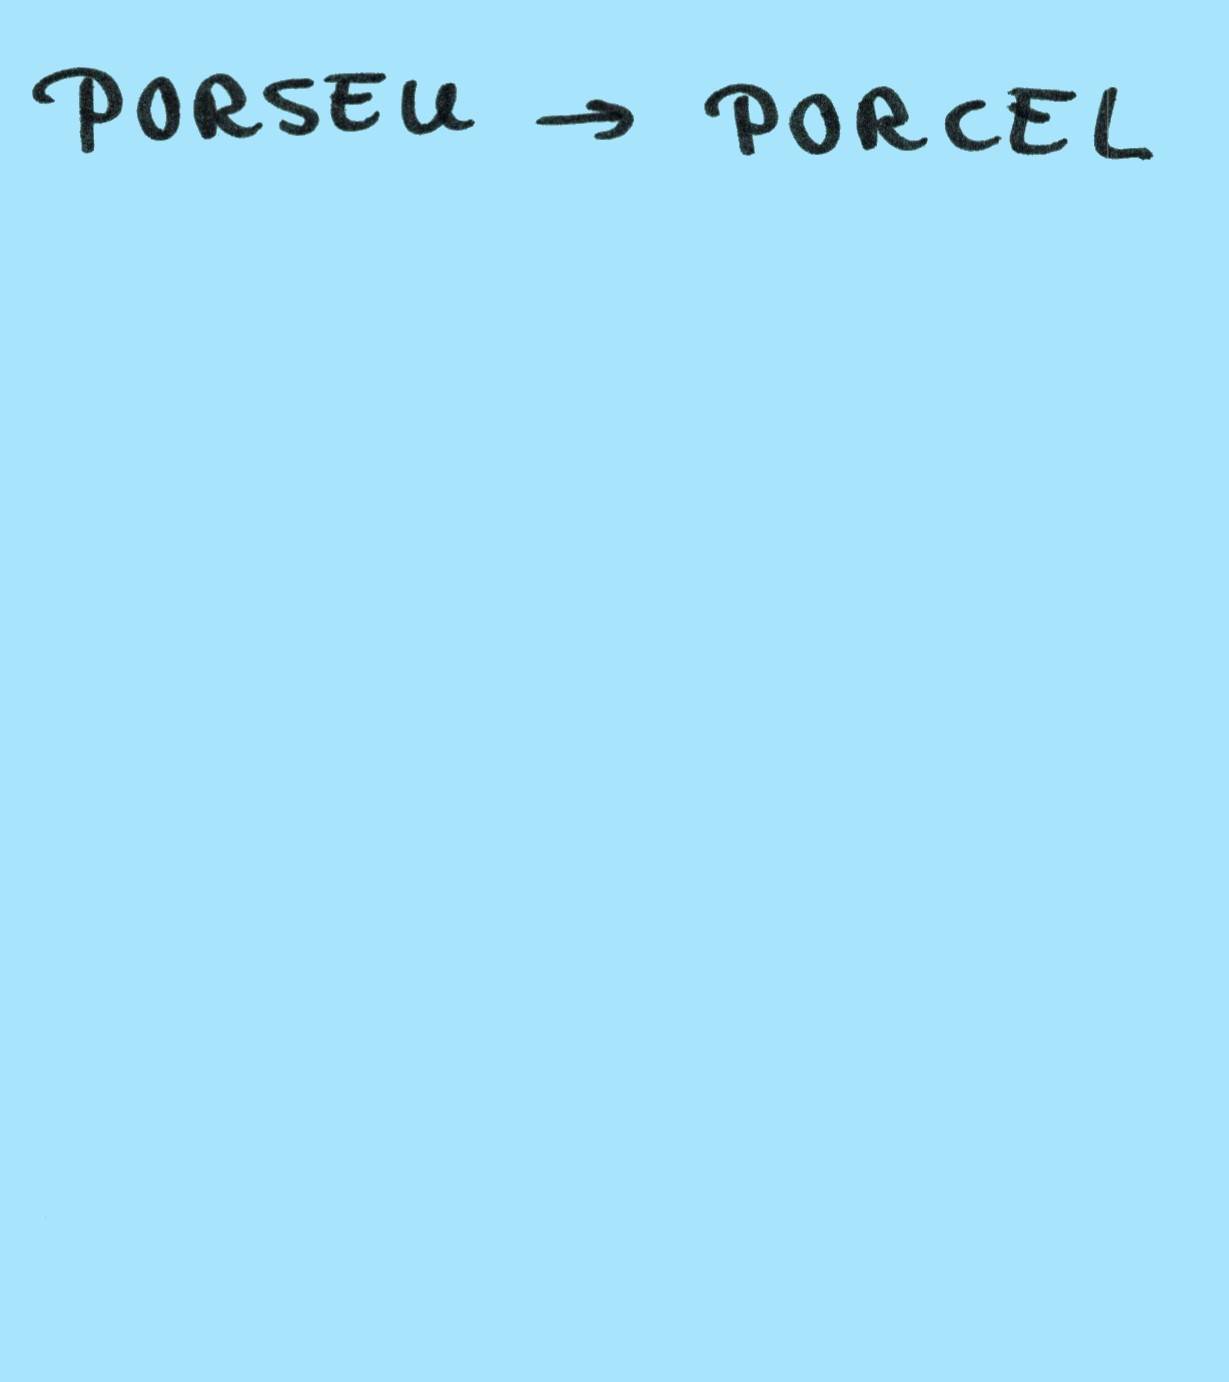 PORSEU → PORCEL